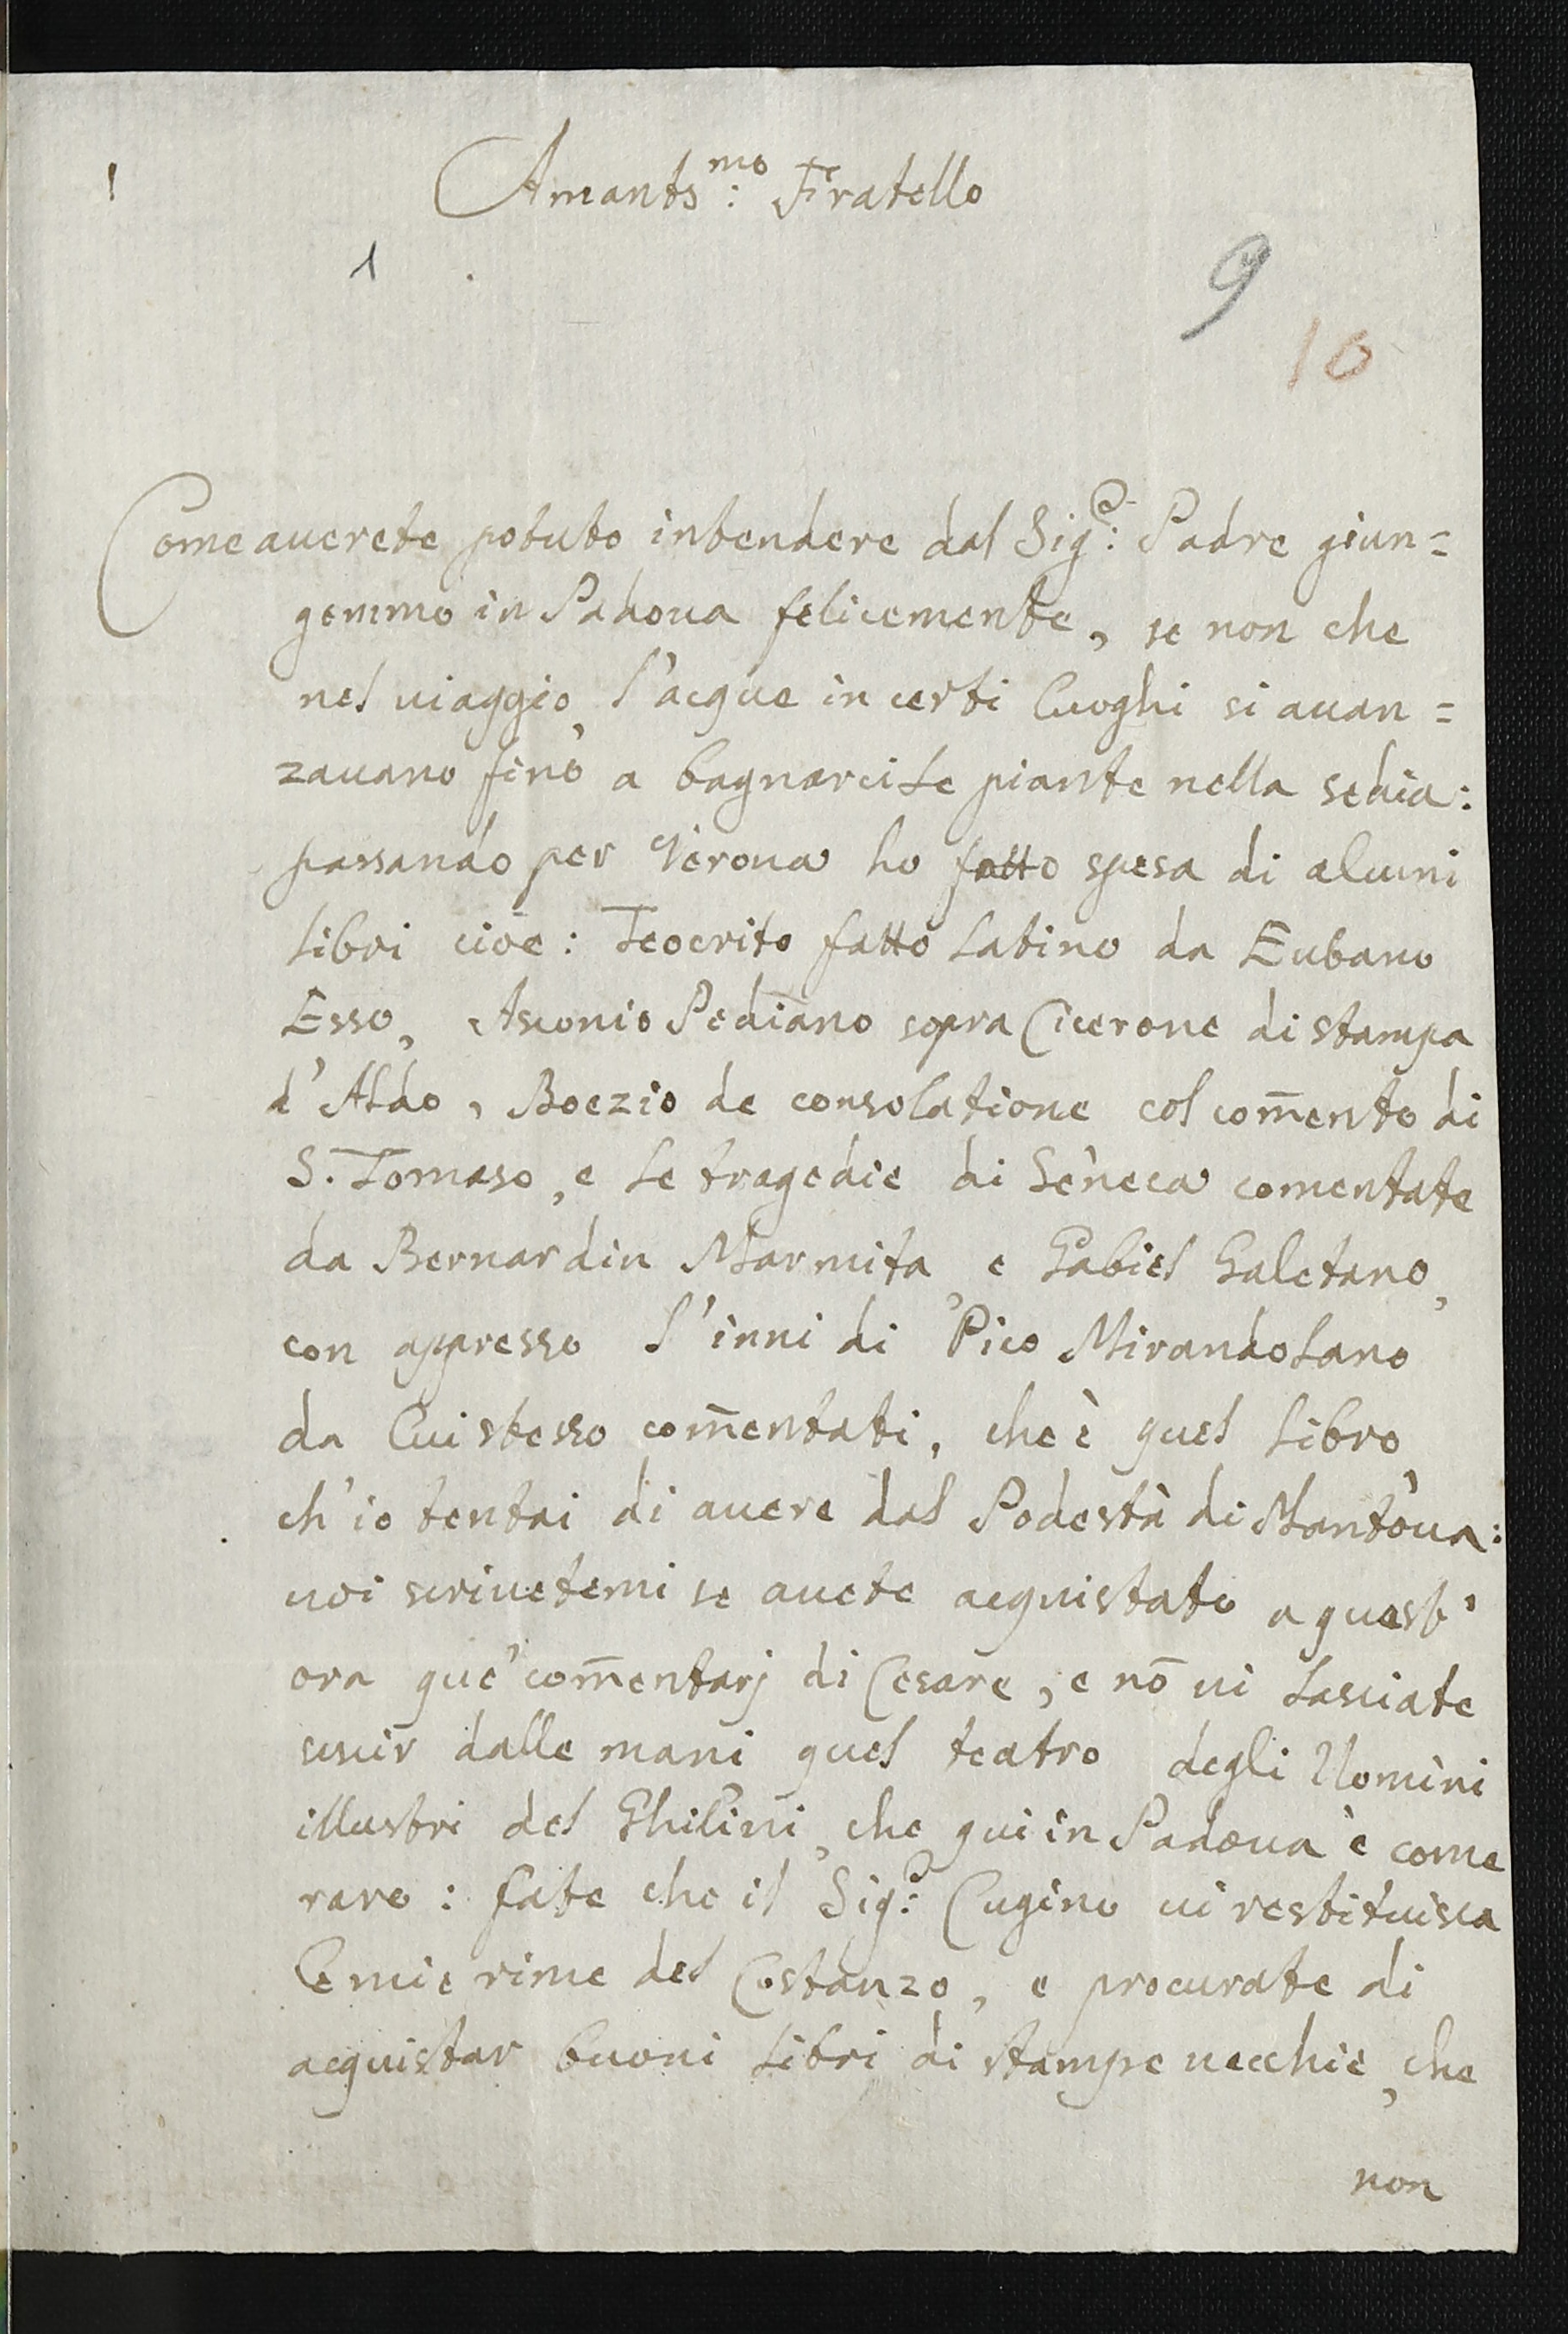 Amants:mo Fratello
1
9
10
Come auerete potuto intendere dal Sig:e Padre giun=
gemmo in Padoua felicemente, se non che
nel uiaggio, l'acque in certi luoghi si auan=
zauano fino a bagnarci le piante nella sedia:
passando per Verona ho fatto spesa di alcuni
libri cioè: Teocrito fatto latino da Eubano
Esso, Asconio Pediano sopra Cicerone di stampa
d'Aldo, Boezio de consolatione col com̄ento di
S. Tomaso, e le tragedie di Seneca comentate
da Bernardin Marmita, e Gabiel Galetano,
con appresso l'inni di Pico Mirandolano
da lui stesso com̄entati, che è quel libro,
ch'io tentai di auere dal Podestà di Mantoua:
uoi scriuetemi se auete acquistato a quest'
ora que' com̄entarj di Cesare, e nō ui lasciate
uscir dalle mani quel teatro degli Uomini
illustri del Ghilini, che qui in Padoua è come
raro: fate che il Sig:e Cugino ui restituisca
le mie rime del Costanzo, e procurate di
acquistar buoni libri di stampe uecchie, che
non